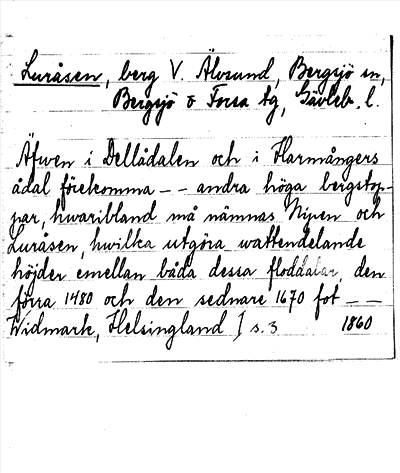 Luråsen, berg V. Älvsund, Bergsjö sn,
Bergsjö o Forsa tg, Gävleb. l.
Äfwen i Dellådalen och i Harmångers
ådal förekomma – – andra höga bergstop-
par, hwaribland må nämnas Nipen och
Luråsen, hwilka utgöra wattendelande
höjder emellan båda dessa floddalar, den
förra 1480 och den sednare 1670 fot – –
Widmark, Helsingland I s. 3 1860